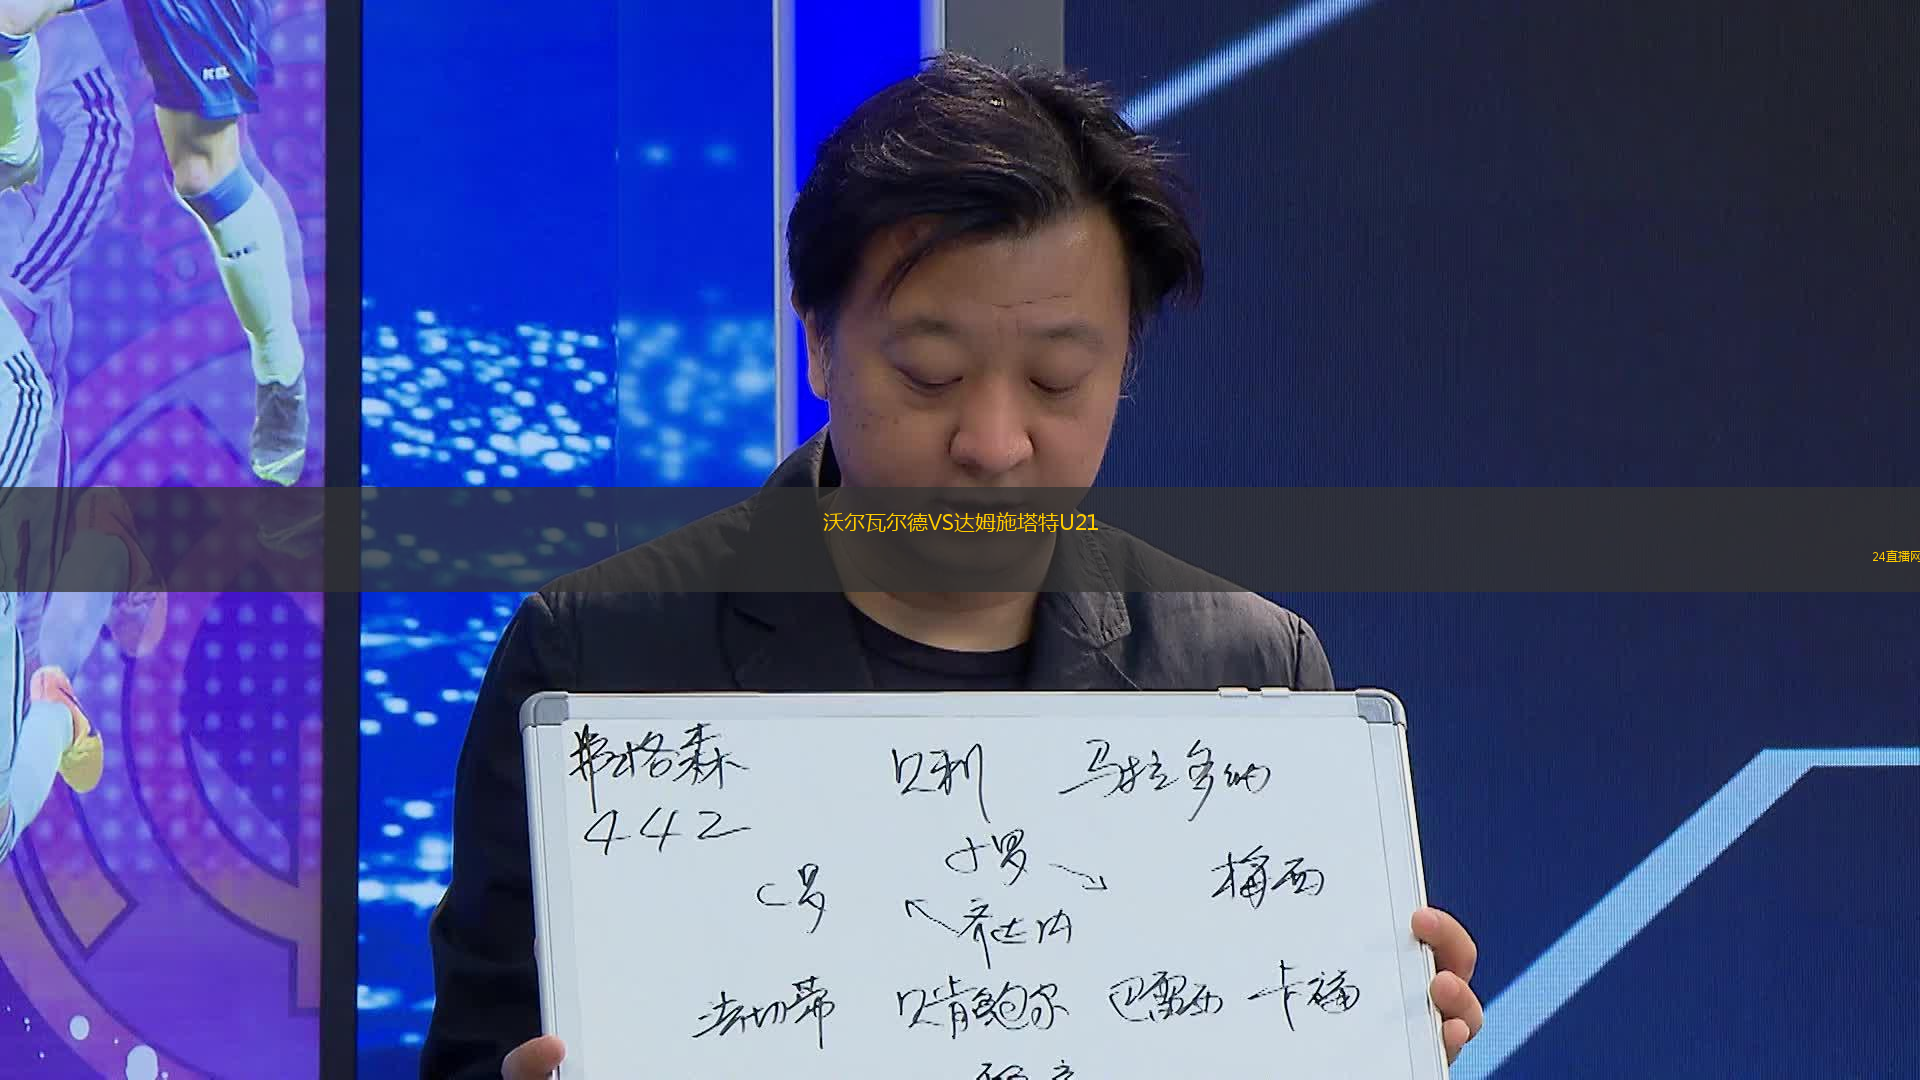 沃尔瓦尔德VS达姆施塔特U21
24直播网
弗格森 贝利 马拉多纳
442
小罗
C罗 梅西
齐达内
法切蒂 贝肯鲍尔 巴雷西 卡福